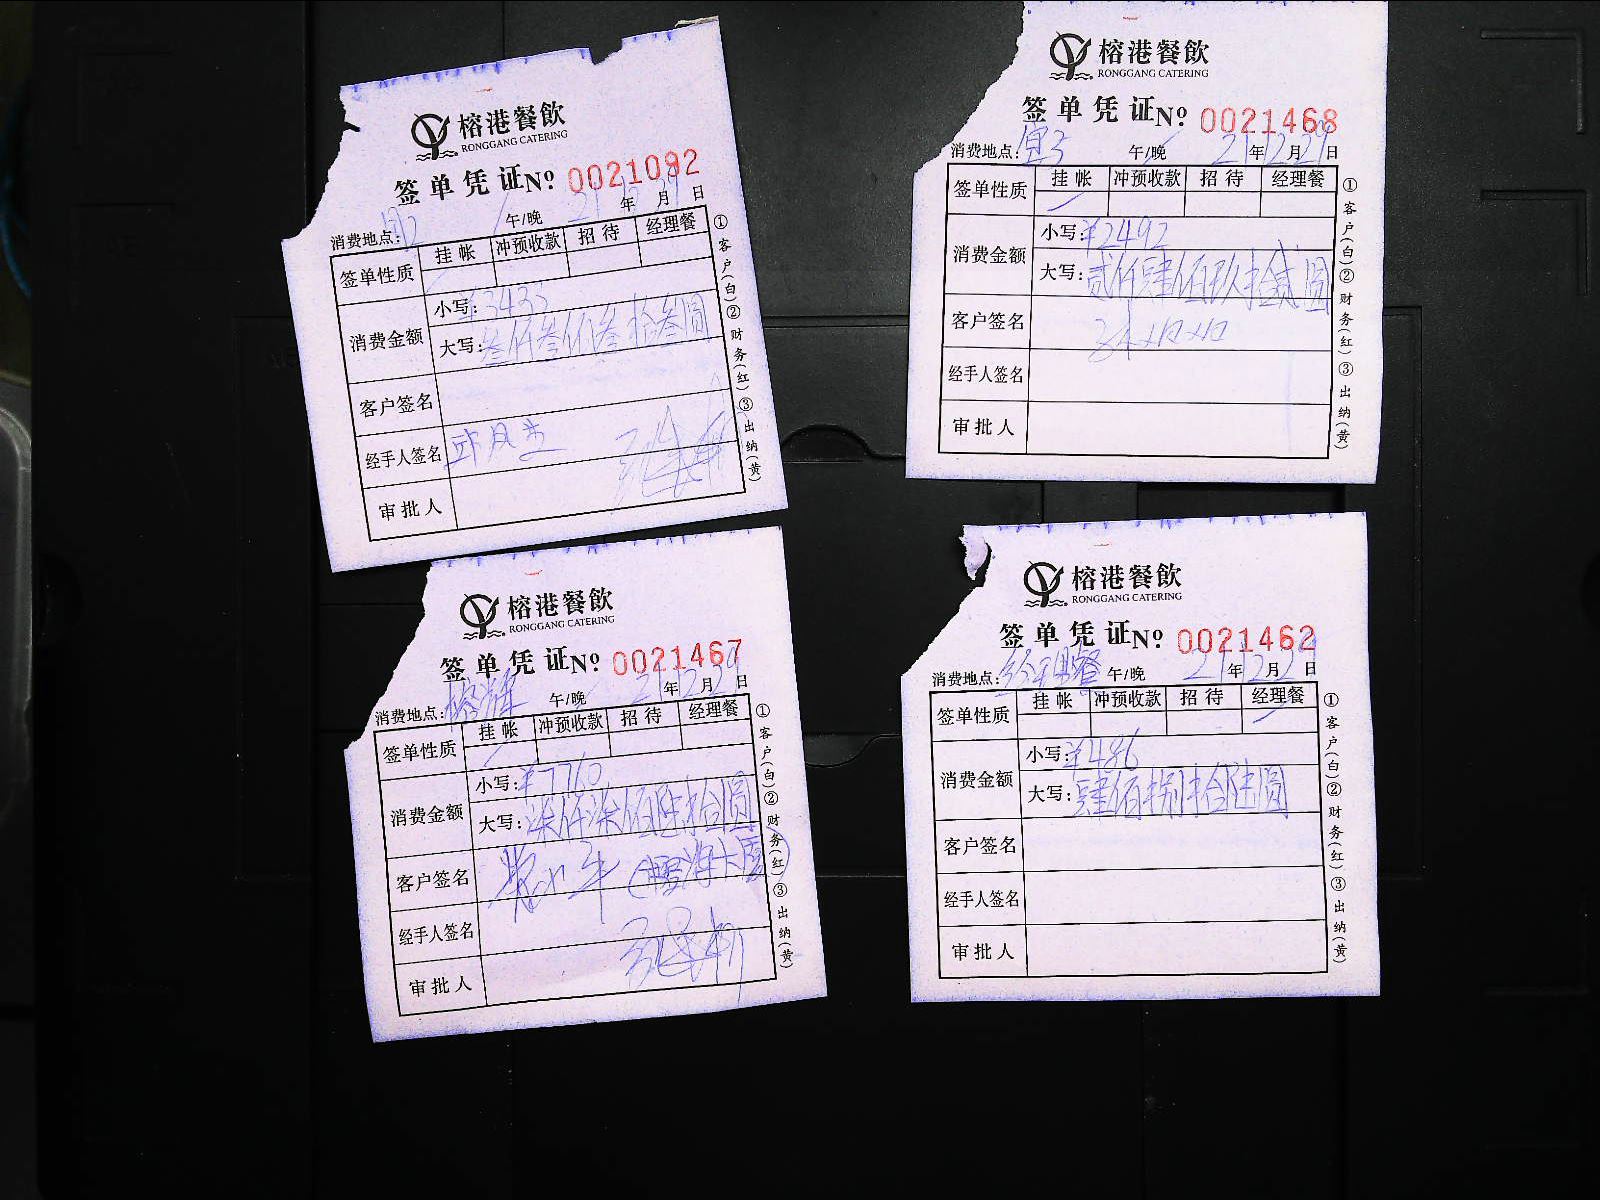 榕港餐飲
RONGGANG CATERING
签单凭证No 0021092
消费地点: 午/晚 21年12月29日
签单性质 挂帐 冲预收款 招待 经理餐
消费金额 小写:
大写:叁仟叁佰叁拾叁圆
客户签名
经手人签名
审批人
①客户(白)②财务(红)③出纳(黄)
榕港餐飲
RONGGANG CATERING
签单凭证No 0021468
消费地点: 午/晚 21年12月29日
签单性质 挂帐 冲预收款 招待 经理餐
消费金额 小写:¥2492
大写:贰仟肆佰玖拾贰圆
客户签名
经手人签名
审批人
①客户(白)②财务(红)③出纳(黄)
榕港餐飲
RONGGANG CATERING
签单凭证No 0021467
消费地点: 午/晚 21年12月29日
签单性质 挂帐 冲预收款 招待 经理餐
消费金额 小写:¥7760
大写:柒仟柒佰陆拾圆
客户签名
经手人签名
审批人
①客户(白)②财务(红)③出纳(黄)
榕港餐飲
RONGGANG CATERING
签单凭证No 0021462
消费地点:经理餐 午/晚 21年12月29日
签单性质 挂帐 冲预收款 招待 经理餐
消费金额 小写:¥486
大写:肆佰捌拾陆圆
客户签名
经手人签名
审批人
①客户(白)②财务(红)③出纳(黄)